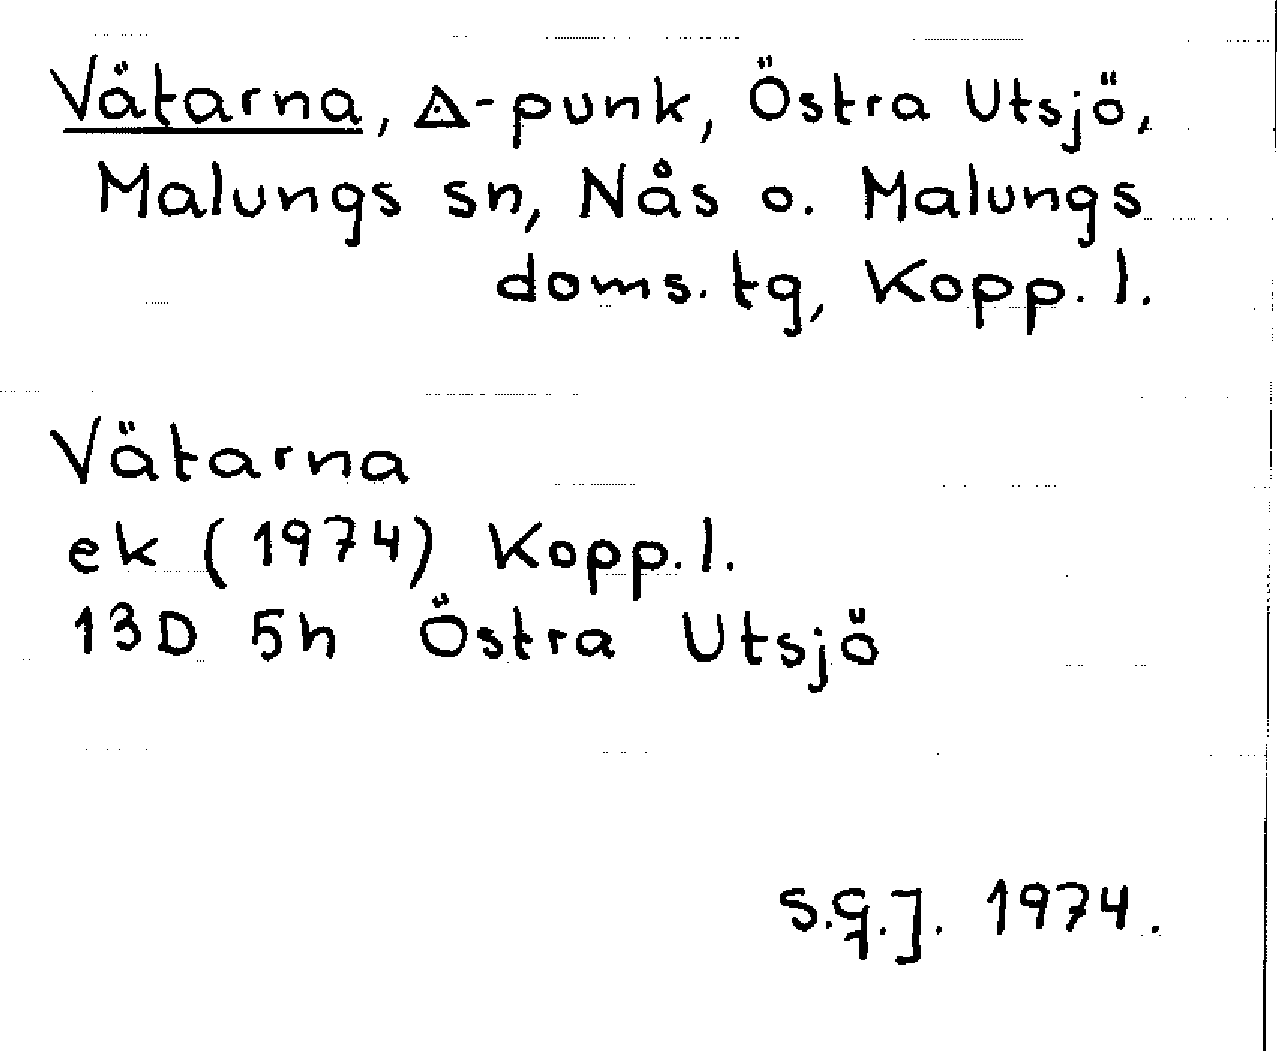 Vätarna, ◬-punk, Östra Utsjö,
Malungs sn, Nås o. Malungs
doms. tg, Kopp. l.
Vätarna
ek (1974) Kopp. l.
13D 5h Östra Utsjö
S.G.J. 1974.